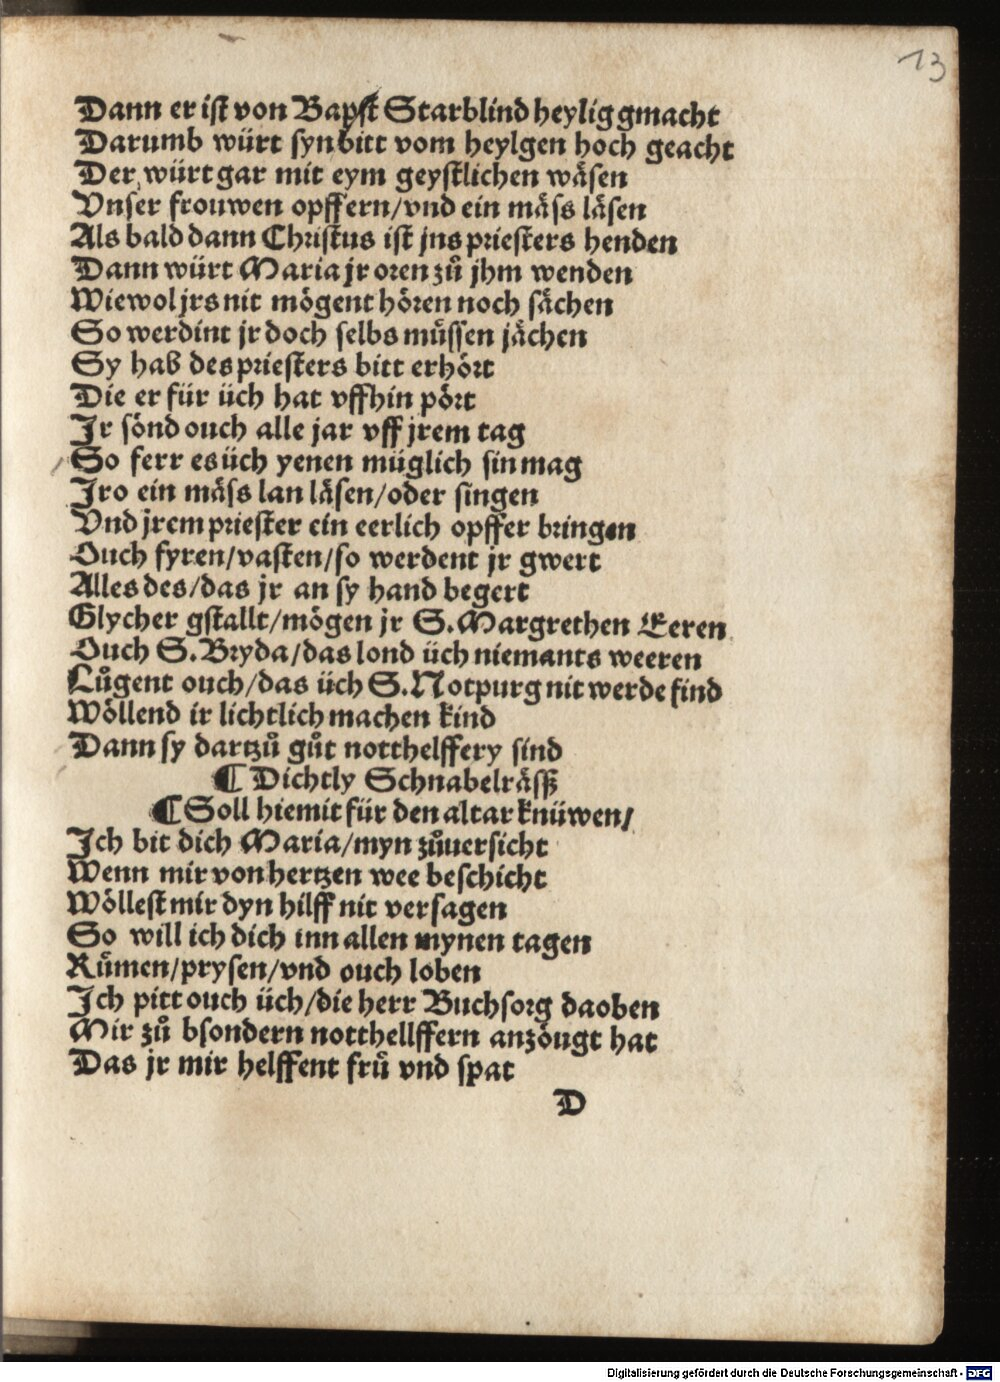 13
Dann er ist von Bapst Starblind heylig gmacht
Darumb würt syn bitt vom heylgen hoch geacht
Der würt gar mit eym geystlichen wäsen
Vnser frouwen opffern/vnd ein mäss läsen
Als bald dann Christus ist jns priesters henden
Dann würt Maria jr oren zů jhm wenden
Wiewol jrs nit mögent hören noch sächen
So werdint jr doch selbs müssen jächen
Sy hab des priesters bitt erhört
Die er für üch hat vffhin pört
Jr sönd ouch alle jar vff jrem tag
So ferr es üch yenen müglich sin mag
Jro ein mäss lan läsen/oder singen
Vnd jrem priester ein eerlich opffer bringen
Ouch fyren/vasten/so werdent jr gwert
Alles des/das jr an sy hand begert
Glycher gstallt/mögen jr S. Margrethen Eeren
Ouch S. Bryda/das lond üch niemants weeren
Lůgent ouch/das üch S. Notpurg nit werde find
Wöllend ir lichtlich machen kind
Dann sy dartzů gůt notthelffery sind
¶ Dichtly Schnabelräß
¶ Soll hiemit für den altar knüwen/
Ich bit dich Maria/myn zůuersicht
Wenn mir von hertzen wee beschicht
Wöllest mir dyn hilff nit versagen
So will ich dich inn allen mynen tagen
Rümen/prysen/vnd ouch loben
Ich pitt ouch üch/die herr Buchsorg daoben
Mir zů bsondern notthellffern anzöugt hat
Das jr mir helffent frü vnd spat
D
Digitalisierung gefördert durch die Deutsche Forschungsgemeinschaft - DFG